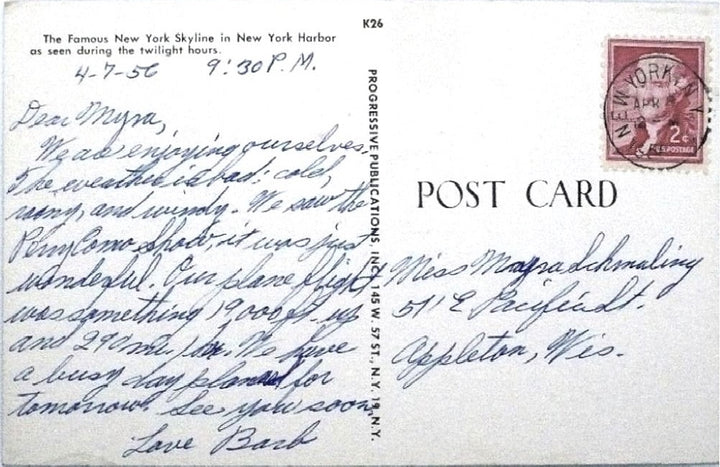 K26
The Famous New York Skyline in New York Harbor
as seen during the twilight hours.
4-7-56 9:30 P.M.
Dear Myra,
We are enjoying ourselves.
The weather is bad: cold,
rainy, and windy. We saw the
Perry Como Show, it was just
wonderful. Our plane flight
was something 19,000 ft. up
and 290 mi. / hr. We have
a busy day planned for
tomorrow. See you soon,
Love Barb
PROGRESSIVE PUBLICATIONS, INC., 145 W. 57 ST., N.Y. 19, N.Y.
NEW YORK, N.Y.
APR
2¢
U.S. POSTAGE
POST CARD
Miss Myra Schmaling
511 E Pacific St.
Appleton, Wis.